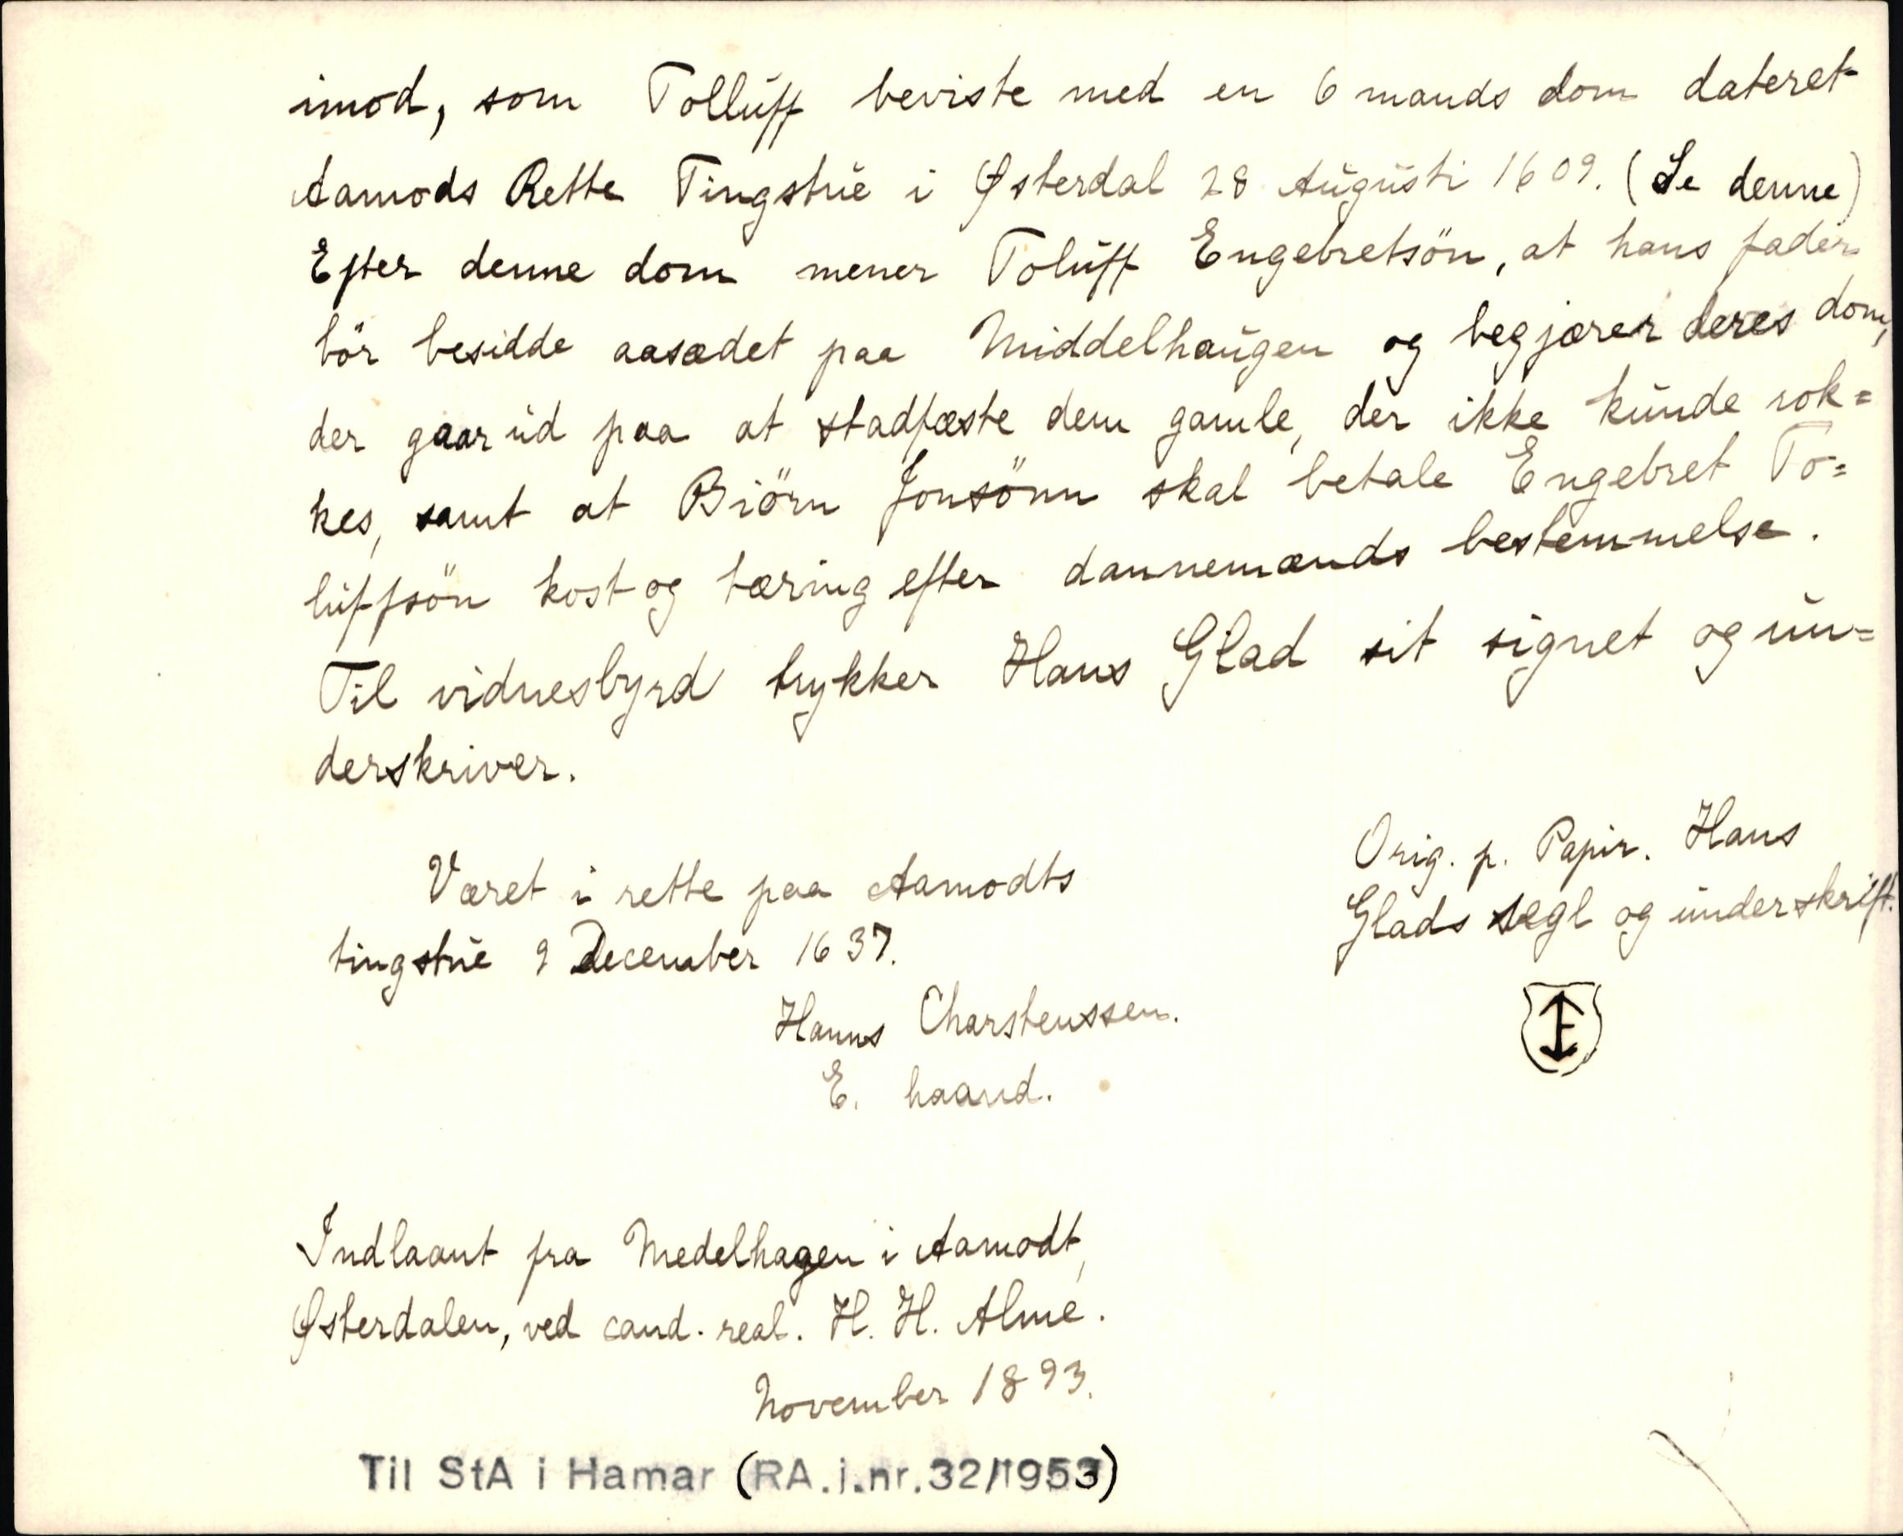 imod, som Tolluff beviste med en 6 mands dom dateret
Aamods Rette Tingstue i Østerdal 28 Augusti 1609. (Se denne)
Efter denne dom mener Toluff Engebretsön, at hans fader
bör besidde aasædet paa Middelhaugen og begjærer deres dom,
der gaar ud paa at stadfæste dem gamle, der ikke kunde rok=
kes, samt at Biörn Jonsönn skal betale Engebret To=
luffsön kost og tæring efter dannemænds bestemmelse.
Til vidnesbyrd trykker Hans Glad sit signet og un=
derskriver.
Været i rette paa Aamodts
tingstue 9 December 1637.
Hanns Charstenssen.
E. haand.
Orig. p. Papir. Hans
Glads segl og underskrift.
Indlaant fra Medelhagen i Aamodt,
Østerdalen, ved cand. real. H. H. Alme.
November 1893.
Til StA i Hamar (RA.j.nr.32/1953)